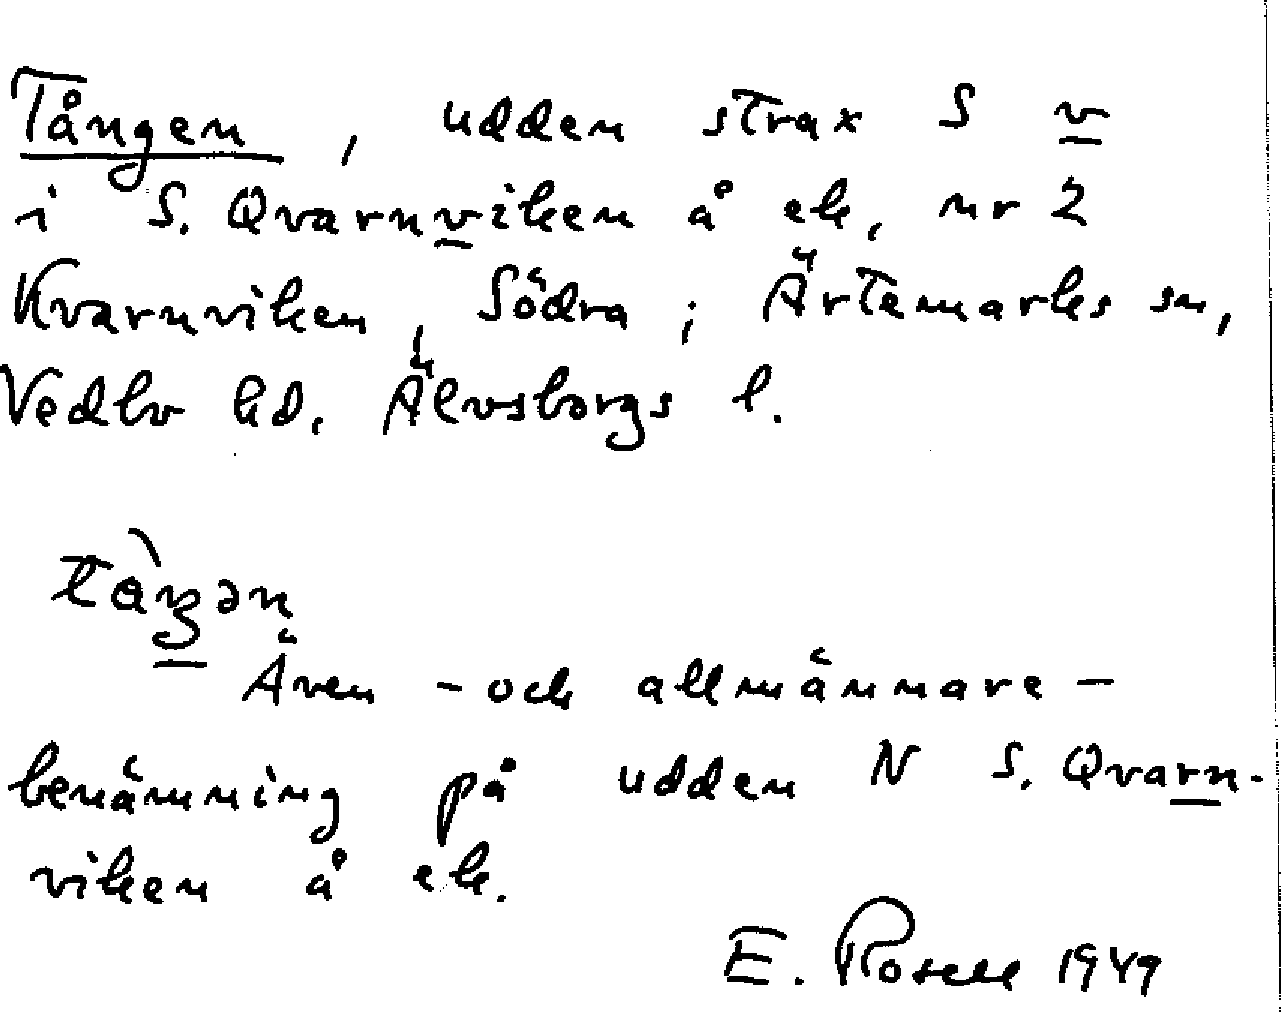 Tången, udden strax S v
i S. Qvarnviken å ek, nr 2
Kvarnviken, Södra; Ärtemarks sn,
Vedbo hd. Älvsborgs l.
Även - och allmännare -
benämning på udden N S. Qvarn-
viken å ek.
E. Rosell 1949